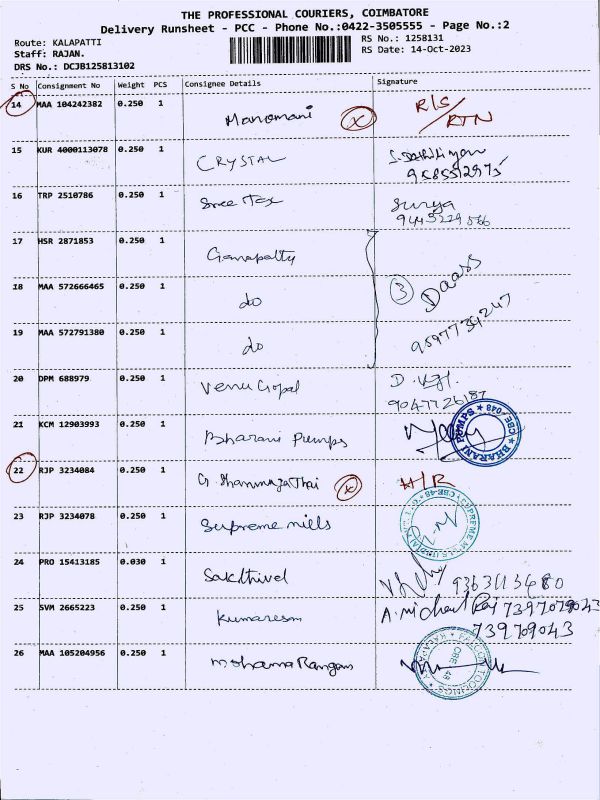 THE PROFESSIONAL COURIERS, COIMBATORE
Delivery Runsheet - PCC - Phone No.:0422-3505555 - Page No.:2
Route: KALAPATTI
Staff: RAJAN.
DRS No.: DCJB125813102
RS No.: 1258131
RS Date: 14-Oct-2023
S No Consignment No Weight PCS Consignee Details Signature
14 MAA 104242382 0.250 1 Manomani X R/S
RTN
15 KUR 4000113078 0.250 1 CRYSTAL
9585512975
16 TRP 2510786 0.250 1 Sree Tex Surya
17 HSR 2871853 0.250 1 Ganapatty
18 MAA 572666465 0.250 1 do 3 Daass
19 MAA 572791380 0.250 1 do 9597734247
20 DPM 688979 0.250 1 Venu Gopal
9047726187
21 KCM 12903993 0.250 1 Bharani Pumps
BHARANI PUMPS CBE-048
22 RJP 3234084 0.250 1 X H/R
23 RJP 3234078 0.250 1 Supreme mills
24 PRO 15413185 0.030 1 Sakthivel
25 SVM 2665223 0.250 1 Kumaresan A. Michael Raj 7397079043
739709043
26 MAA 105204956 0.250 1 Mohana Rangam
CBE-48